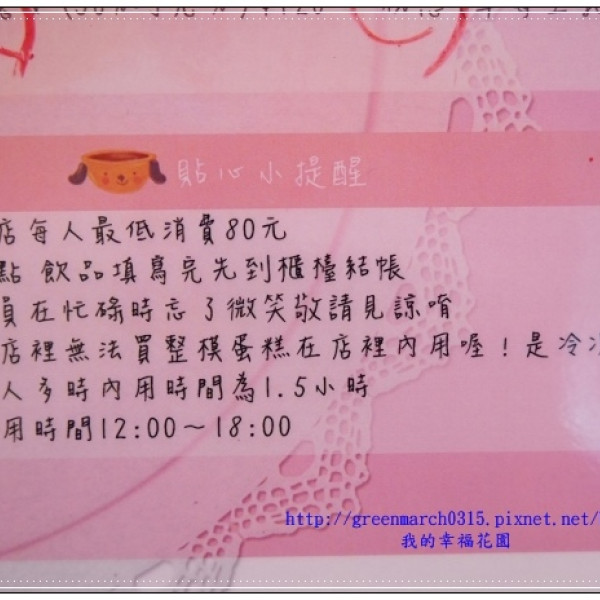 貼心小提醒
店每人最低消費80元
點 飲品填寫完先到櫃檯結帳
員在忙碌時忘了微笑敬請見諒唷
店裡無法買整模蛋糕在店裡內用喔！是冷
人多時內用時間為1.5小時
用時間12:00～18:00
http://greenmarch0315.pixnet.net/
我的幸福花園